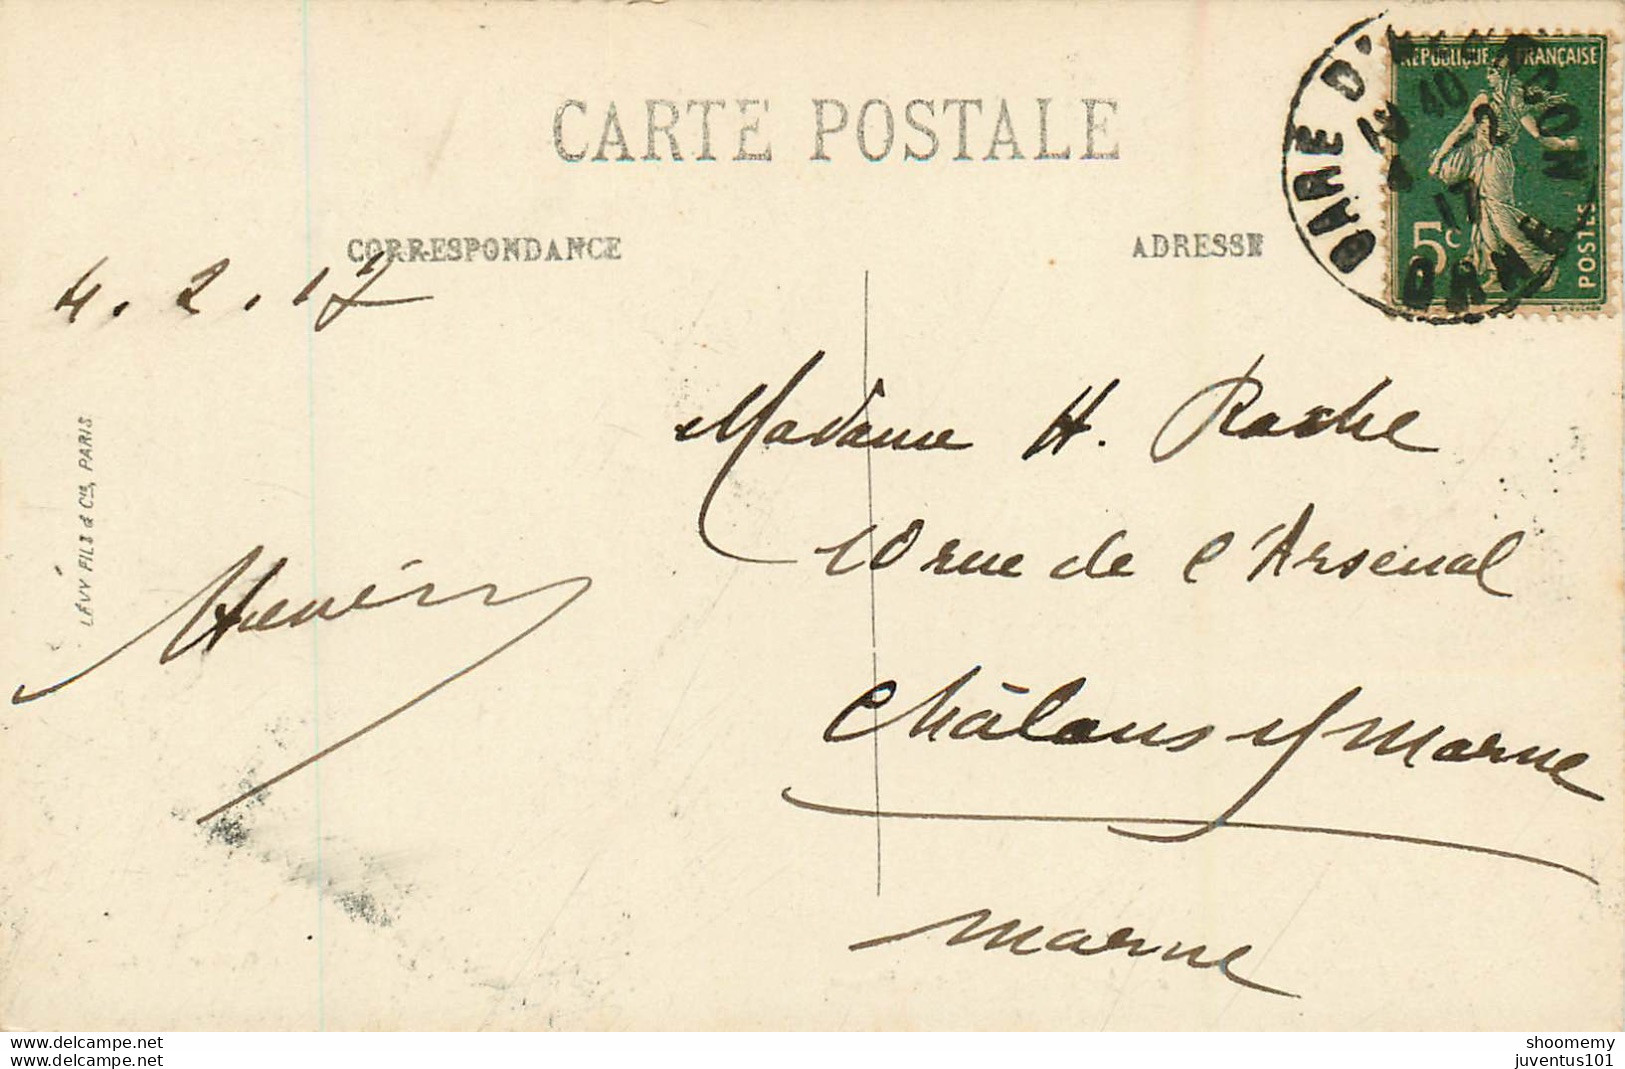 CARTE POSTALE
CORRESPONDANCE
ADRESSE
RÉPUBLIQUE FRANÇAISE
5c
POSTES
GARE D'
40
2
17
ORNE
4. 2. 17
LÉVY FILS & Cie, PARIS
Madame H.
10 rue de l'Arsenal
Châlons s/ Marne
Marne
www.delcampe.net
www.delcampe.net
shoomemy
juventus101